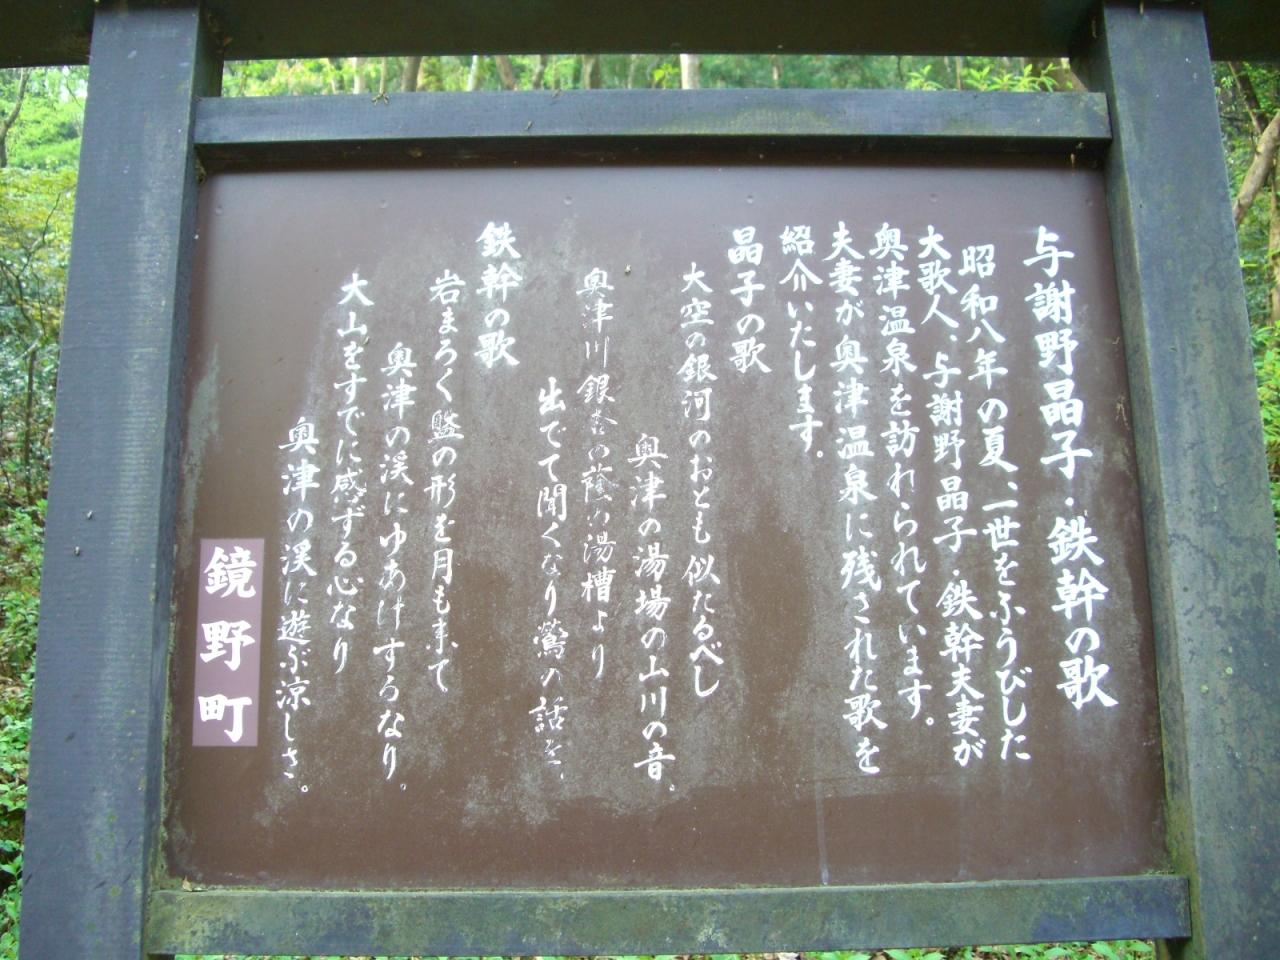 与謝野晶子・鉄幹の歌
昭和八年の夏、一世をふうびした
大歌人、与謝野晶子・鉄幹夫妻が
奥津温泉を訪れられています。
夫妻が奥津温泉に残された歌を
紹介いたします。
晶子の歌
大空の銀河のおとも似たるべし
奥津の湯場の山川の音。
奥津川銀杏の蔭の湯槽より
出でて聞くなり鶯の話を、
鉄幹の歌
岩まろく盤の形を月も来て
奥津の渓にゆあけするなり。
大山をすでに感ずる心なり
奥津の渓に遊ぶ涼しさ。
鏡野町